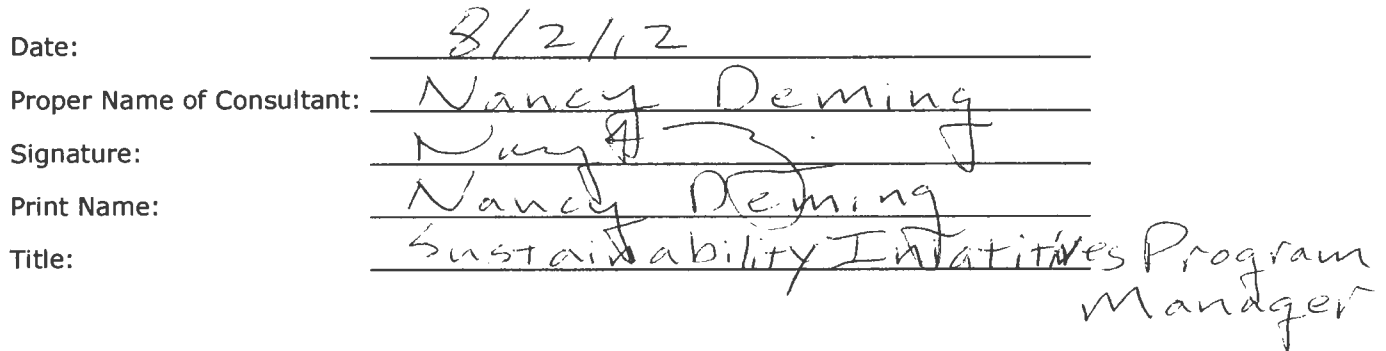 Date: 8/2/12
Proper Name of Consultant: Nancy Deming
Signature:
Print Name: Nancy Deming
Title: Sustainability Iniatitives Program
Manager